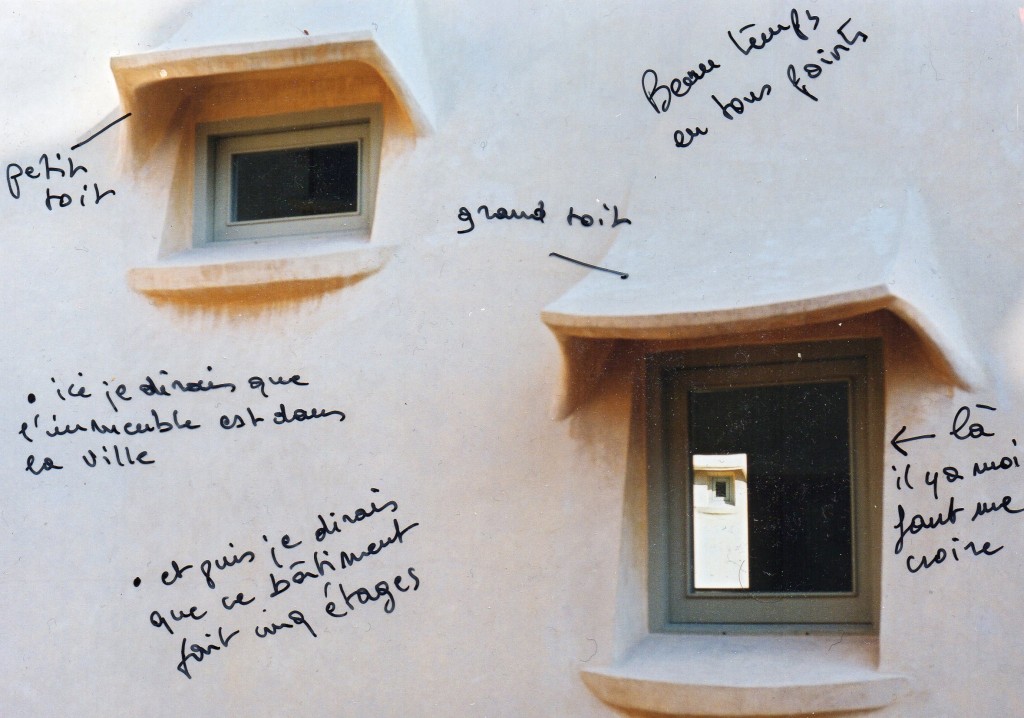 Beau temps
en tous points
petit
toit
grand toit
• ici je dirais que
l'immeuble est dans
la ville
← là
il y a moi
faut me
croire
• et puis je dirais
que ce bâtiment
fait cinq étages